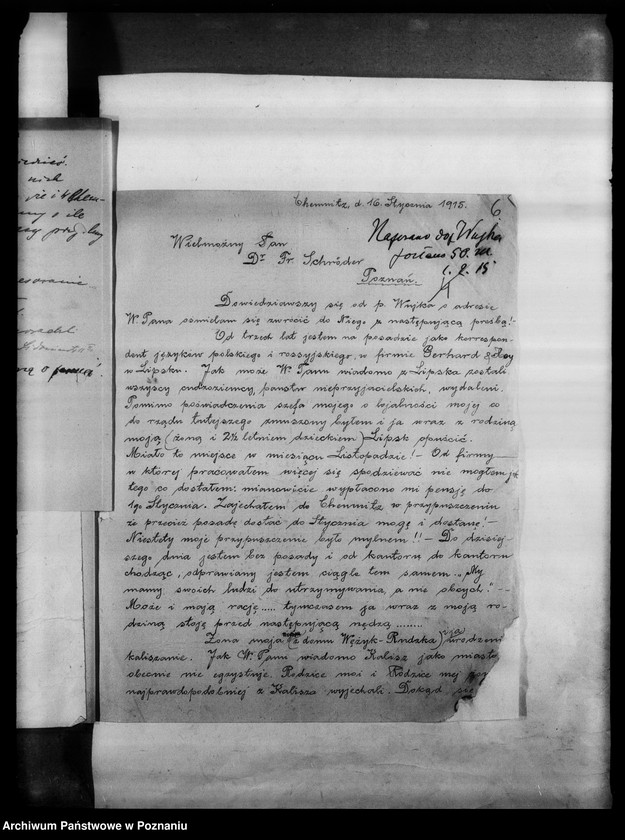 Chemnitz, d. 16. Stycznia 1915.
6.
Napisano do p. Wujka
50 M.
1. 2. 15
Wielmożny Pan
Dr. Fr. Schröder
Poznań.
Dowiedziawszy się od p. Wujka o adresie
W. Pana ośmielam się zwrócić do Niego z następującą prośbą!-
Od trzech lat jestem na posadzie jako korrespon-
dent języków polskiego i rossyjskiego, w firmie Gerhard & Hey
w Lipsku. Jak może W. Panu wiadomo z Lipska zostali
wszyscy cudzoziemcy, państw nieprzyjacielskich, wydaleni.
Pomimo poświadczenia szefa mojego o lojalności mojej co
do rządu tutejszego zmuszony byłem i ja wraz z rodziną
moją (żoną i 2½ letniem dzieckiem) Lipsk opuścić.
Miało to miejsce w miesiącu Listopadzie! - Od firmy -
w której pracowałem więcej się spodziewać nie mogłem jak
tego co dostałem: mianowicie wypłacono mi pensję do
1go Stycznia. Zajechałem do Chemnitz w przypuszczeniu
że przecież posadę dostać do Stycznia mogę i dostanę! -
Niestety moje przypuszczenie było mylnem!! - Do dzisiej-
szego dnia jestem bez posady i od kantoru do kantoru
chodząc, odprawiany jestem ciągle tem samem... „My
mamy swoich ludzi do utrzymywania, a nie obcych." --
Może i mają rację..... tymczasem ja wraz z moją ro-
dziną stoję przed następującą nędzą........
Żona moja (z domu Wężyk-Rudzka) i ja urodzeni
kaliszanie. Jak W. Panu wiadomo Kalisz jako miasto
obecnie nie egzystuje. Rodzice moi i Rodzice mej
najprawdopodobniej z Kalisza wyjechali. Dokąd się
Archiwum Państwowe w Poznaniu